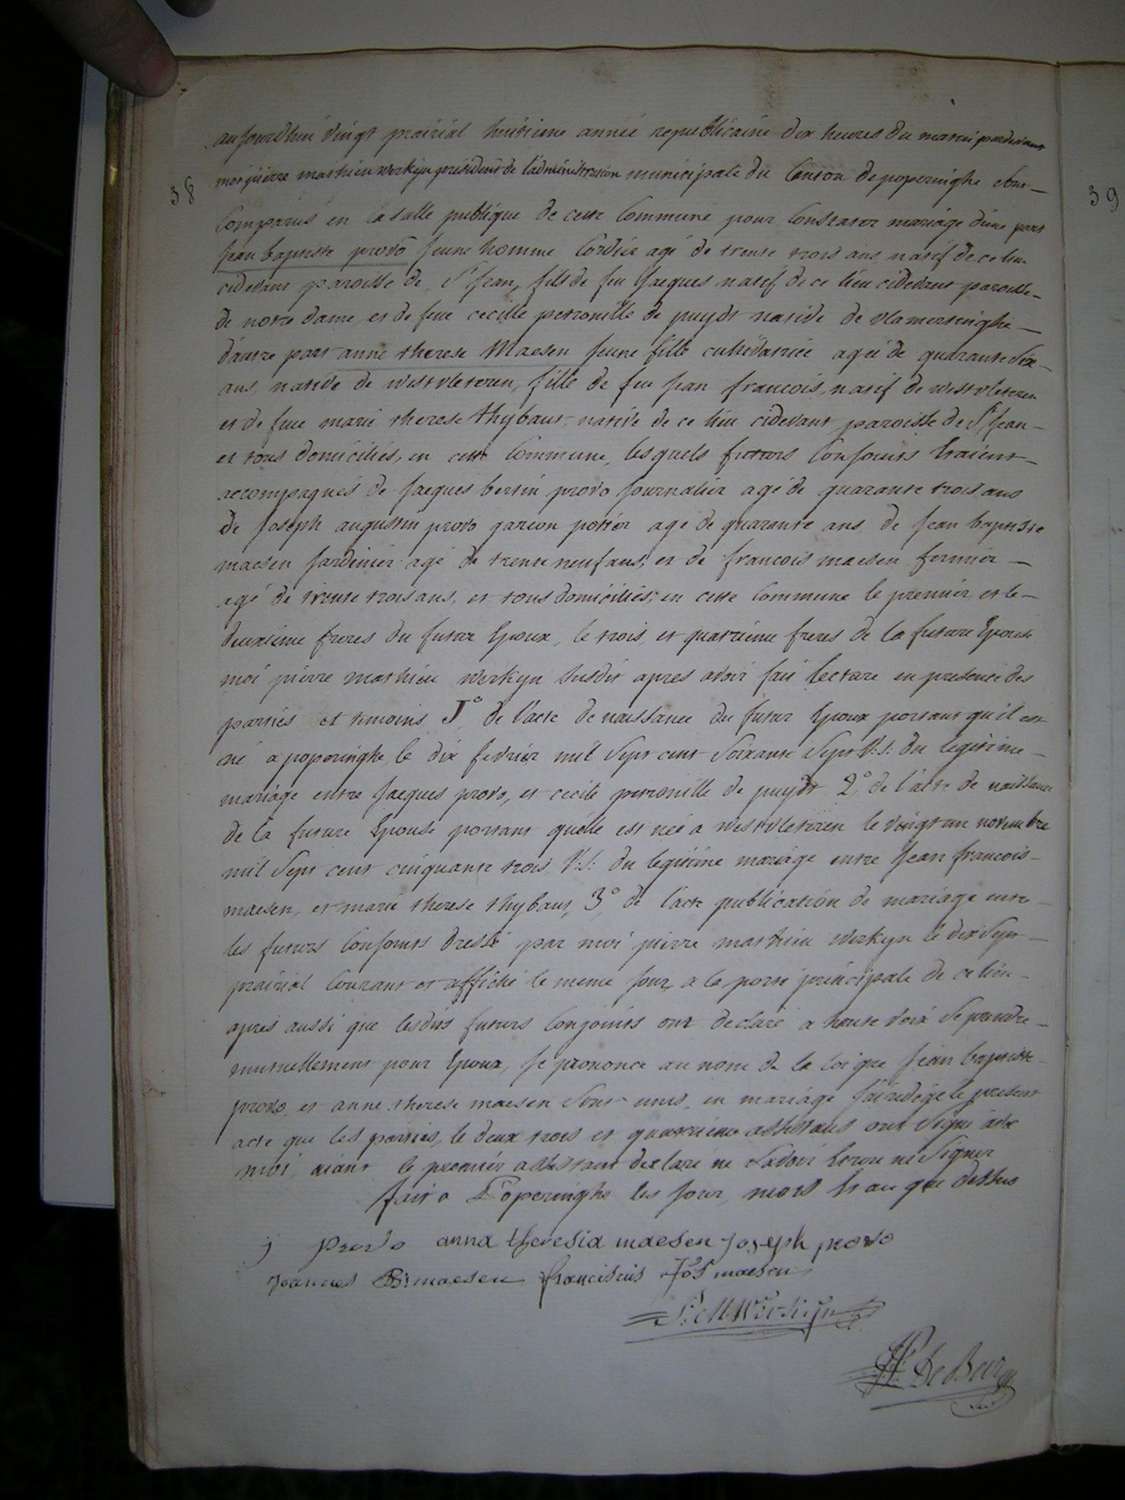 aujourdhui vingt prairial huitieme année republicaine dix heures du matin pardevant
38
moi pierre mathieu werkyn president de l'administration municipale du Canton de poperinghe sont
39
Comparus en la salle publique de cette Commune pour Constater mariage d'une part
jean baptiste provo jeune homme Cordier agé de trente trois ans natif de ce lieu
cidevant paroisse de St jean, fils de feu jacques natif de ce lieu cidevant paroisse
de notre dame, et de feue cecille petronille de puydt native de vlamertinghe
d'autre part anne therese Maesen jeune fille cultivatrice agée de quarante six
ans, native de westvleteren, fille de feu jean francois, natif de westvleteren
et de feue marie therese thybaut native de ce lieu cidevant paroisse de St jean
et tous domiciliés, en cette Commune, lesquels futurs Conjoints etaient
accompagnés de jacques bertin provo journalier agé de quarante trois ans
de joseph augustin provo garcon potier agé de quarante ans de jean baptiste
maesen jardinier agé de trente neuf ans, et de francois maesen fermier
agé de trente trois ans, et tous domiciliés en cette Commune le premier et le
deuxieme freres du futur Epoux, le trois, et quatrieme freres de la future Epouse
moi pierre mathieu werkyn susdit apres avoir fait lecture en presence des
parties et temoins 1° de l'acte de naissance du futur Epoux portant qu'il est
né a poperinghe le dix fevrier mil sept cent soixante sept V.S. du legitime
mariage entre jacques provo, et cecile petronille de puydt 2° de l'acte de naissance
de la future Epouse portant quelle est née a westvleteren le vingt un novembre
mil sept cent cinquante trois V.S. du legitime mariage entre jean francois
maesen, et marie therese thybaut, 3° de l'acte publication de mariage entre
les futurs Conjoints dressé par moi pierre mathieu werkyn le dix sept
prairial Courant et affiché le meme jour a la porte principale de ce lieu
apres aussi que lesdits futurs Conjoints ont declaré a haute voix se prendre
mutuellement pour Epoux, je prononce au nom de la loi que jean baptiste
provo et anne therese maesen sont unis en mariage j'ai redigé le present
acte que les parties, le deux trois et quatrieme assistans ont signé avec
moi aiant le premier assistant declaré ne savoir Ecrire ne signer
fait a Poperinghe les jour, mois et an que dessus
j provo anna theresia maesen joseph provo
joannes B: maesen franciscus Jos maesen
P: M Werkyn
De Beir